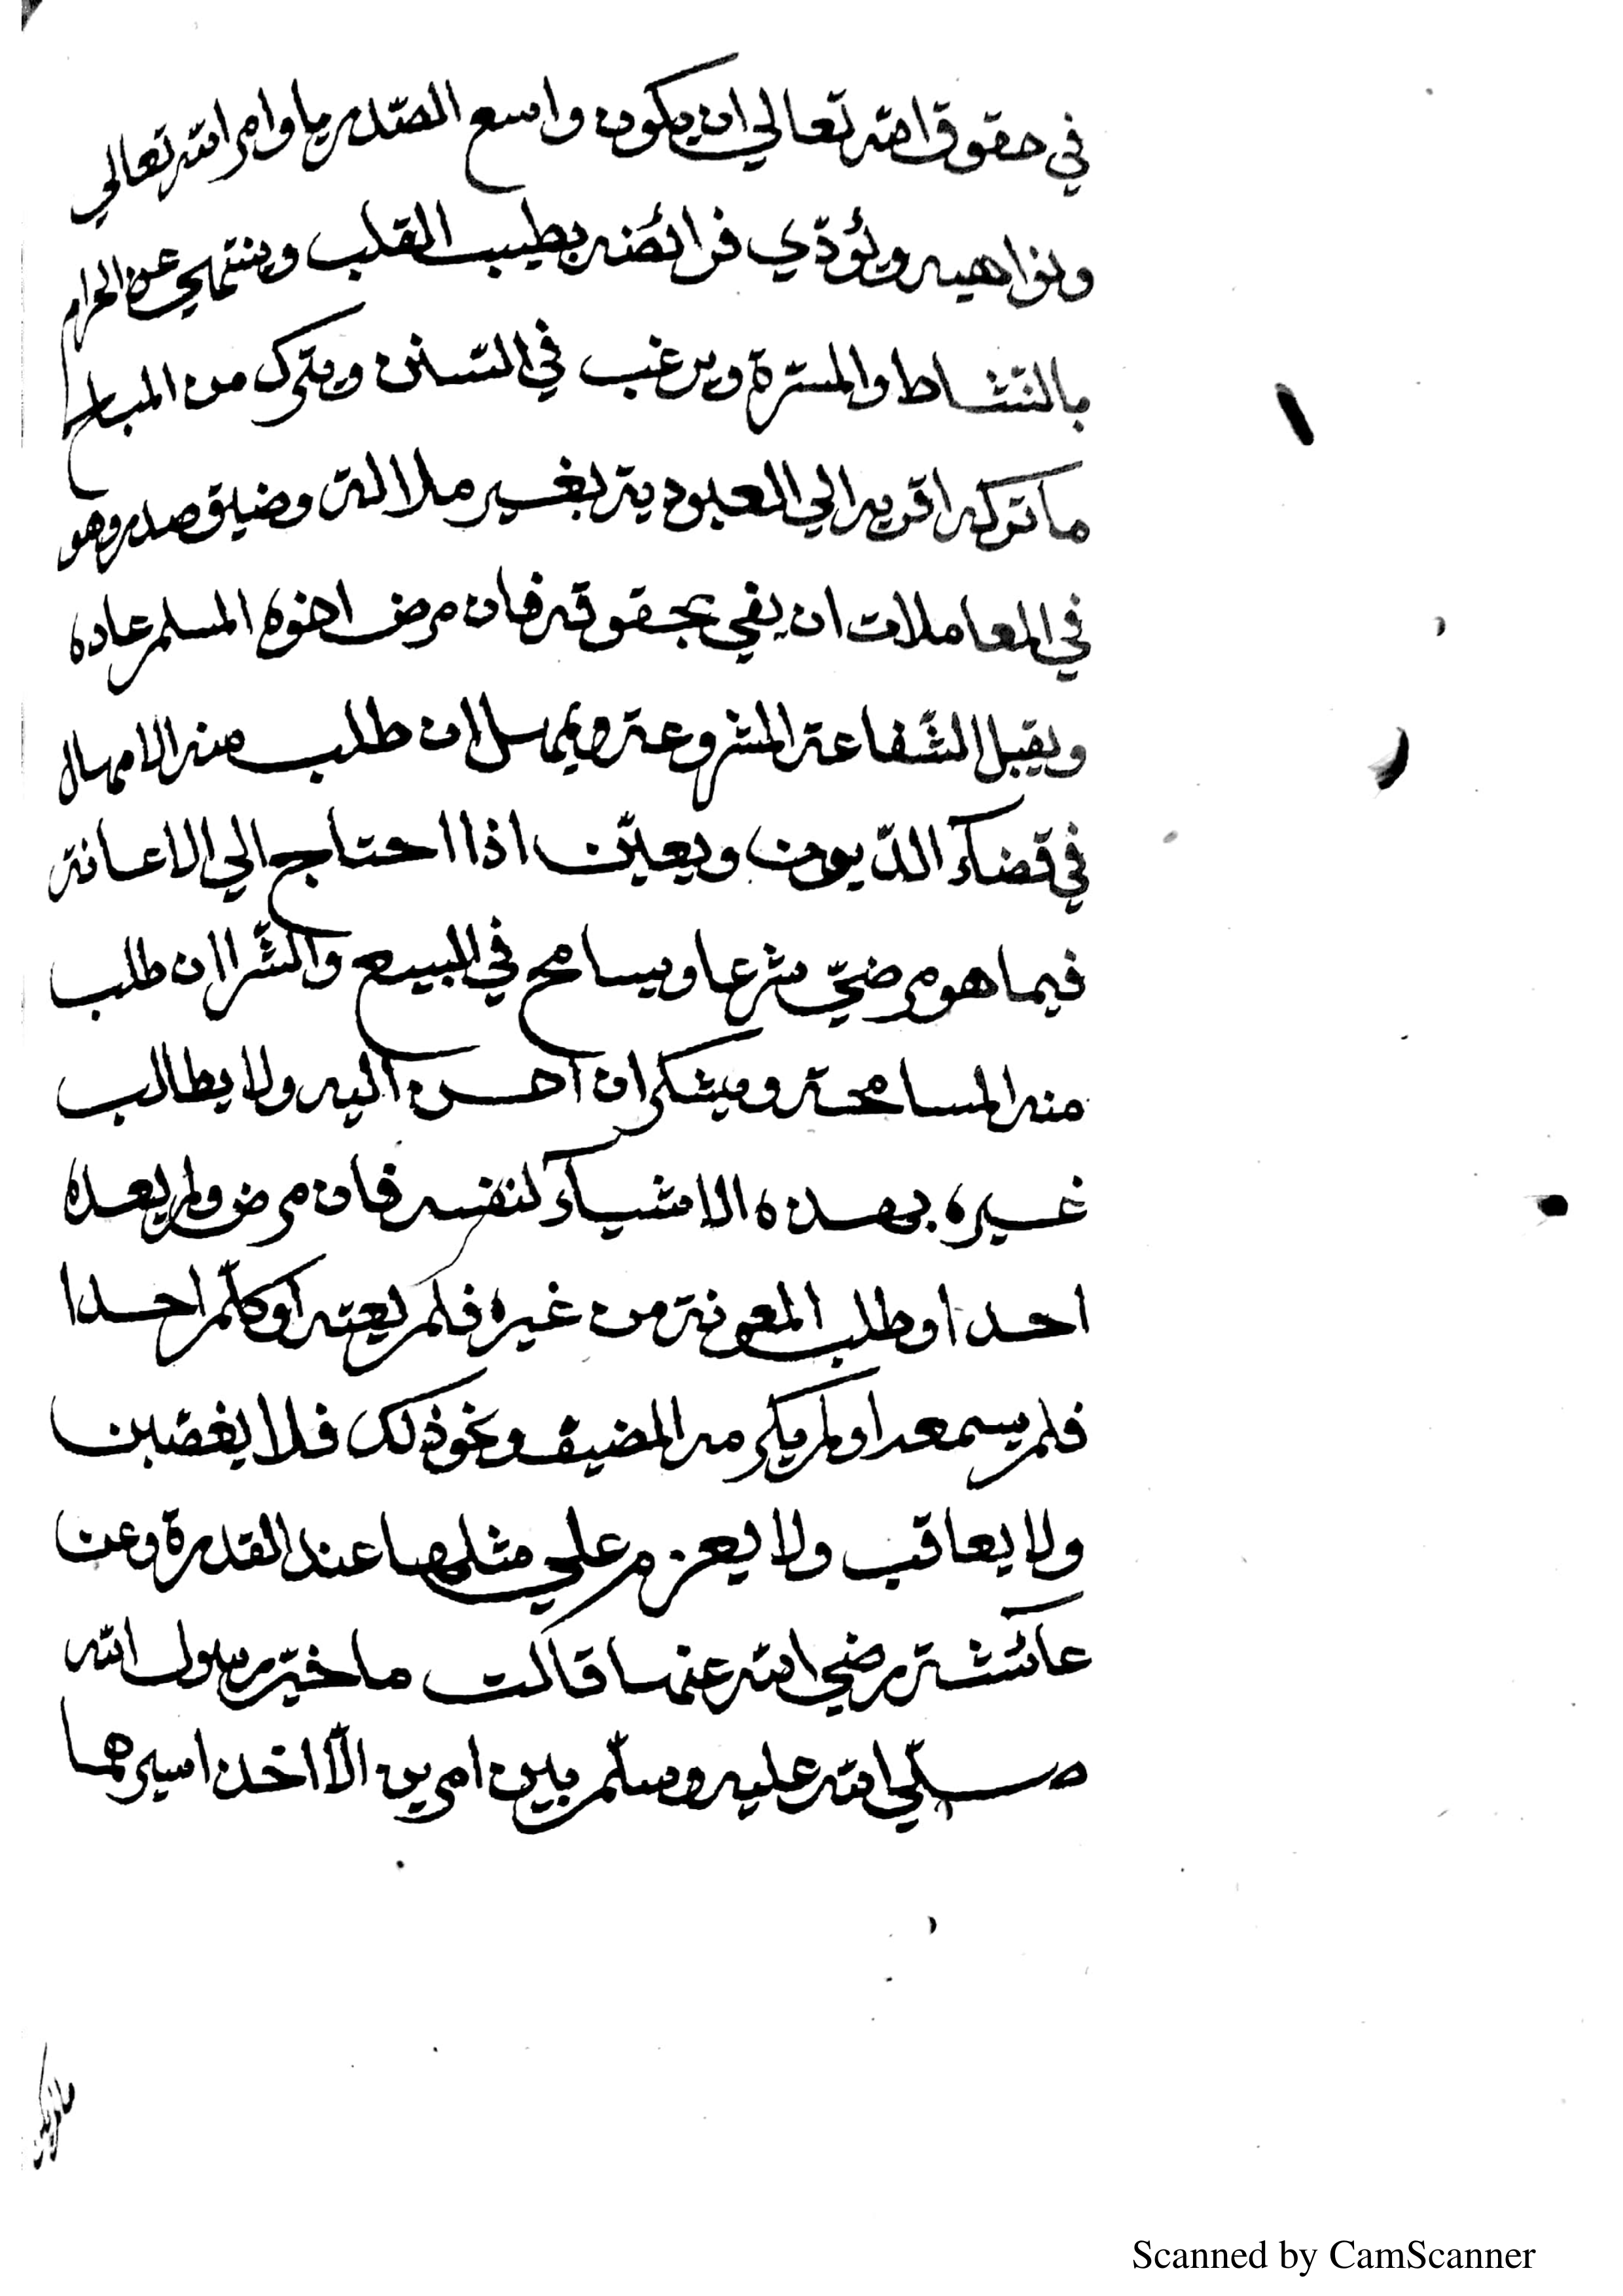 في حقوق الله تعالي ان يكون واسع الصّدر باوامر الله تعالي
ونواهيه ويؤدّي فرائضه بطيب القلب وينتهي عن الحرام
بالنّشاط والمسرّة ويرغب في السّنن ويترك من المباح
ما تركه اقرب الي العبودية بغير ملالة وضيق صدر وهو
في المعاملات ان يفي بحقوقه فان مرض اخوه المسلم عاده
ويقبل الشّفاعة المشروعة ويمهل ان طلب منه الامهال
في قضاء الدّيون ويعين اذا احتاج الي الاعانة
فيما هو مرضيّ شرعا ويسامح في البيع والشّرا ان طلب
منه المسامحة ويشكر ان احسن اليه ولا يطالب
غيره بهذه الاشياء لنفسه فان مرض ولم يعده
احد او طلب المعونة من غيره فلم يعنه او كلّم احدا
فلم يسمعه او لم يكرمه المضيف ونحو ذلك فلا يغضبن
ولا يعاقب ولا يعزم علي مثلها عند القدرة وعن
عائشة رضي الله عنها قالت ما خيّر رسول الله
صلّي الله عليه وسلّم بين امرين الّا اخذ ايسرهما
Scanned by CamScanner